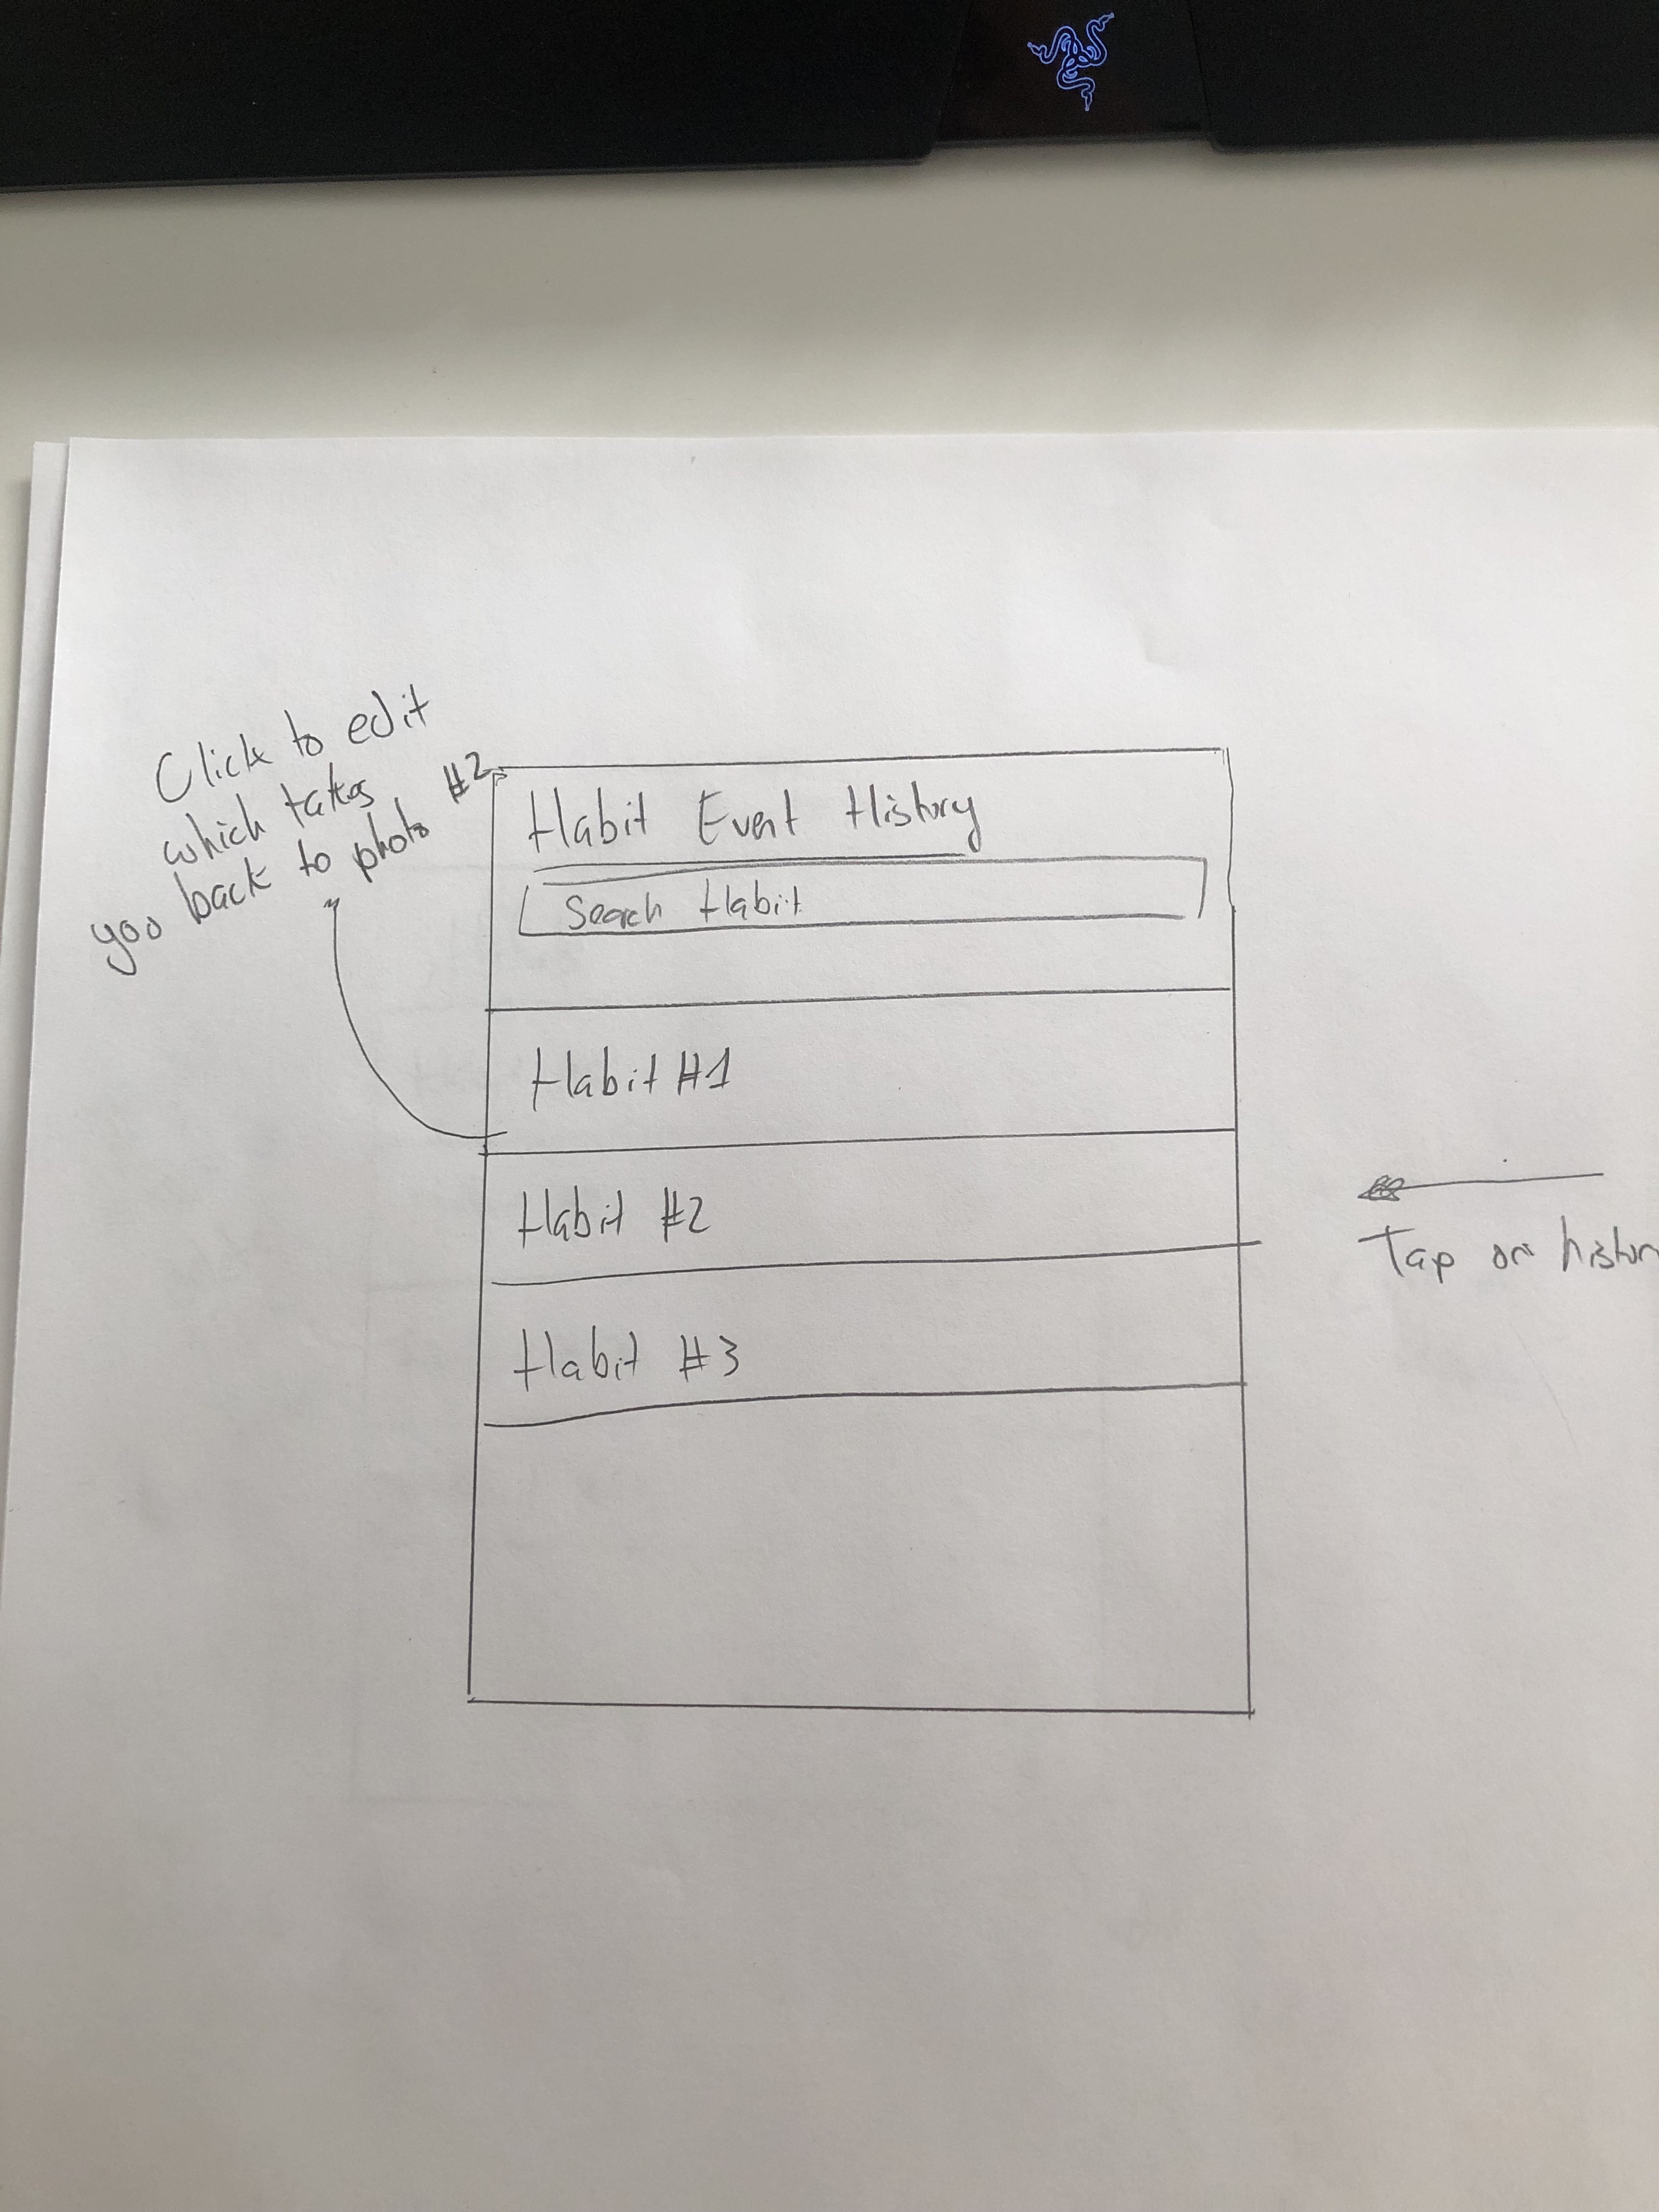 Click to edit
which takes
you back to photo #2
Habit Event History
Search Habit
Habit #1
Habit #2
Habit #3
Tap on histor